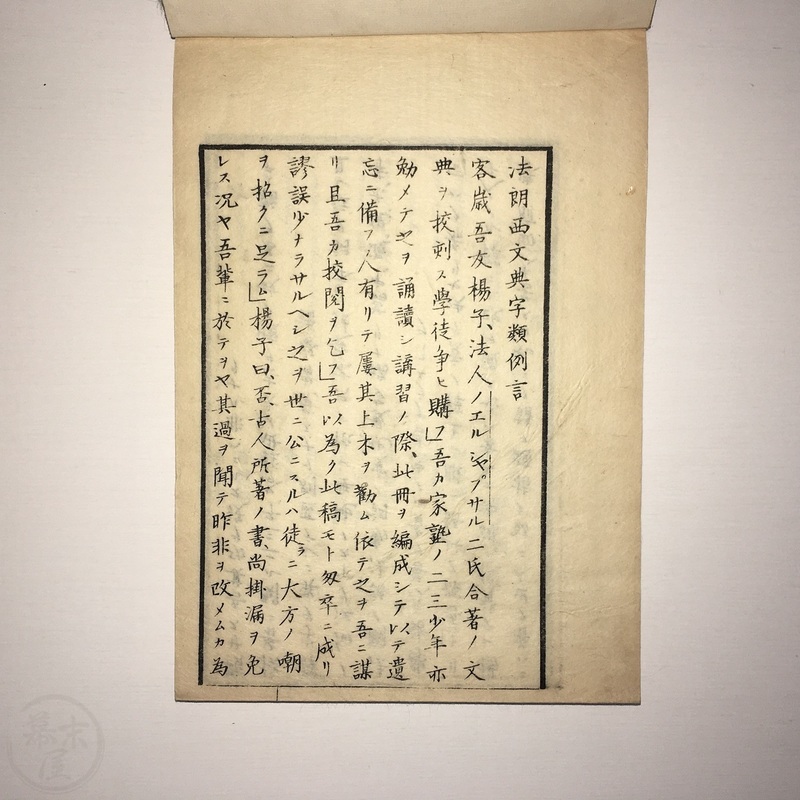 法朗西文典字類例言
客歳吾友楊子、法人ノエルシャプサル二氏合著ノ文
典ヲ挍刻ス學徒争ヒ購フ」吾カ家塾ノ二三少年亦
勉メテ之ヲ誦讀シ講習ノ際、此冊ヲ編成シテ以テ遺
忘ニ備フ、人有リテ屢其上木ヲ勸ム依テ之ヲ吾ニ謀
リ且吾カ挍閲ヲ乞フ」吾以為ク此稿モト匆卒ニ成リ
謬誤少ナラサルヘシ之ヲ世ニ公ニスルハ徒ラニ大方ノ嘲
ヲ招クニ足ラム」楊子曰、否、古人所著ノ書、尚掛漏ヲ免
レス况ヤ吾輩ニ於テヲヤ其過ヲ聞テ昨非ヲ改メムカ為
幕末屋